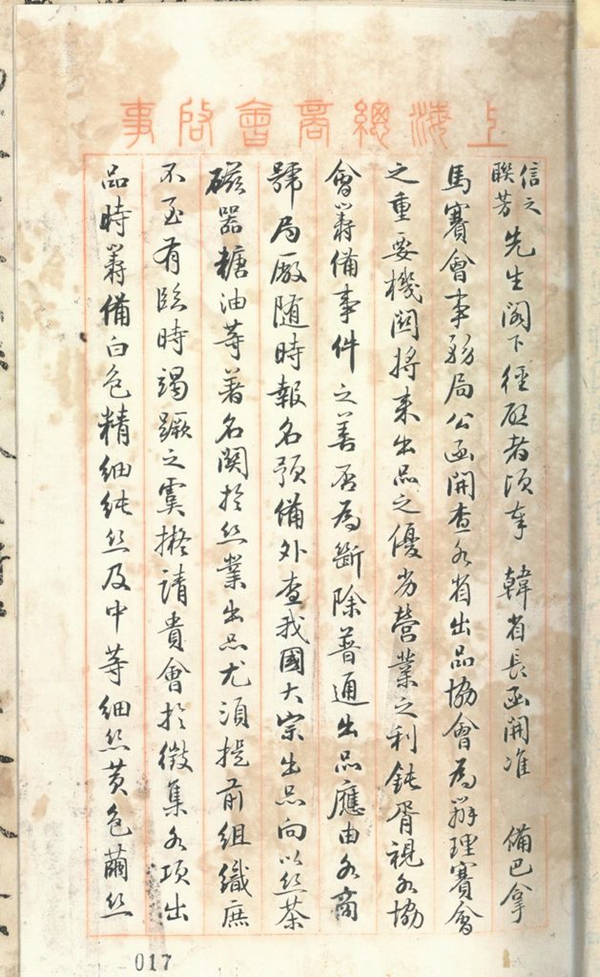 上海總商會啟事
信之
聯芳
先生閣下逕啟者頃奉 韓省長函開准 備巴拿
馬賽會事務局公函開查各省出品協會為辦理賽會
之重要機關將來出品之優劣營業之利鈍胥視各協
會籌備事件之善否為斷除普通出品應由各商
號局廠随時報名預備外查我國大宗出品向以丝茶
磁器糖油等著名関於丝業出品尤須提前組織庶
不至有臨時竭蹶之虞擬請貴會於徵集各項出
品時籌備白色精細純丝及中等細丝黄色繭丝
017